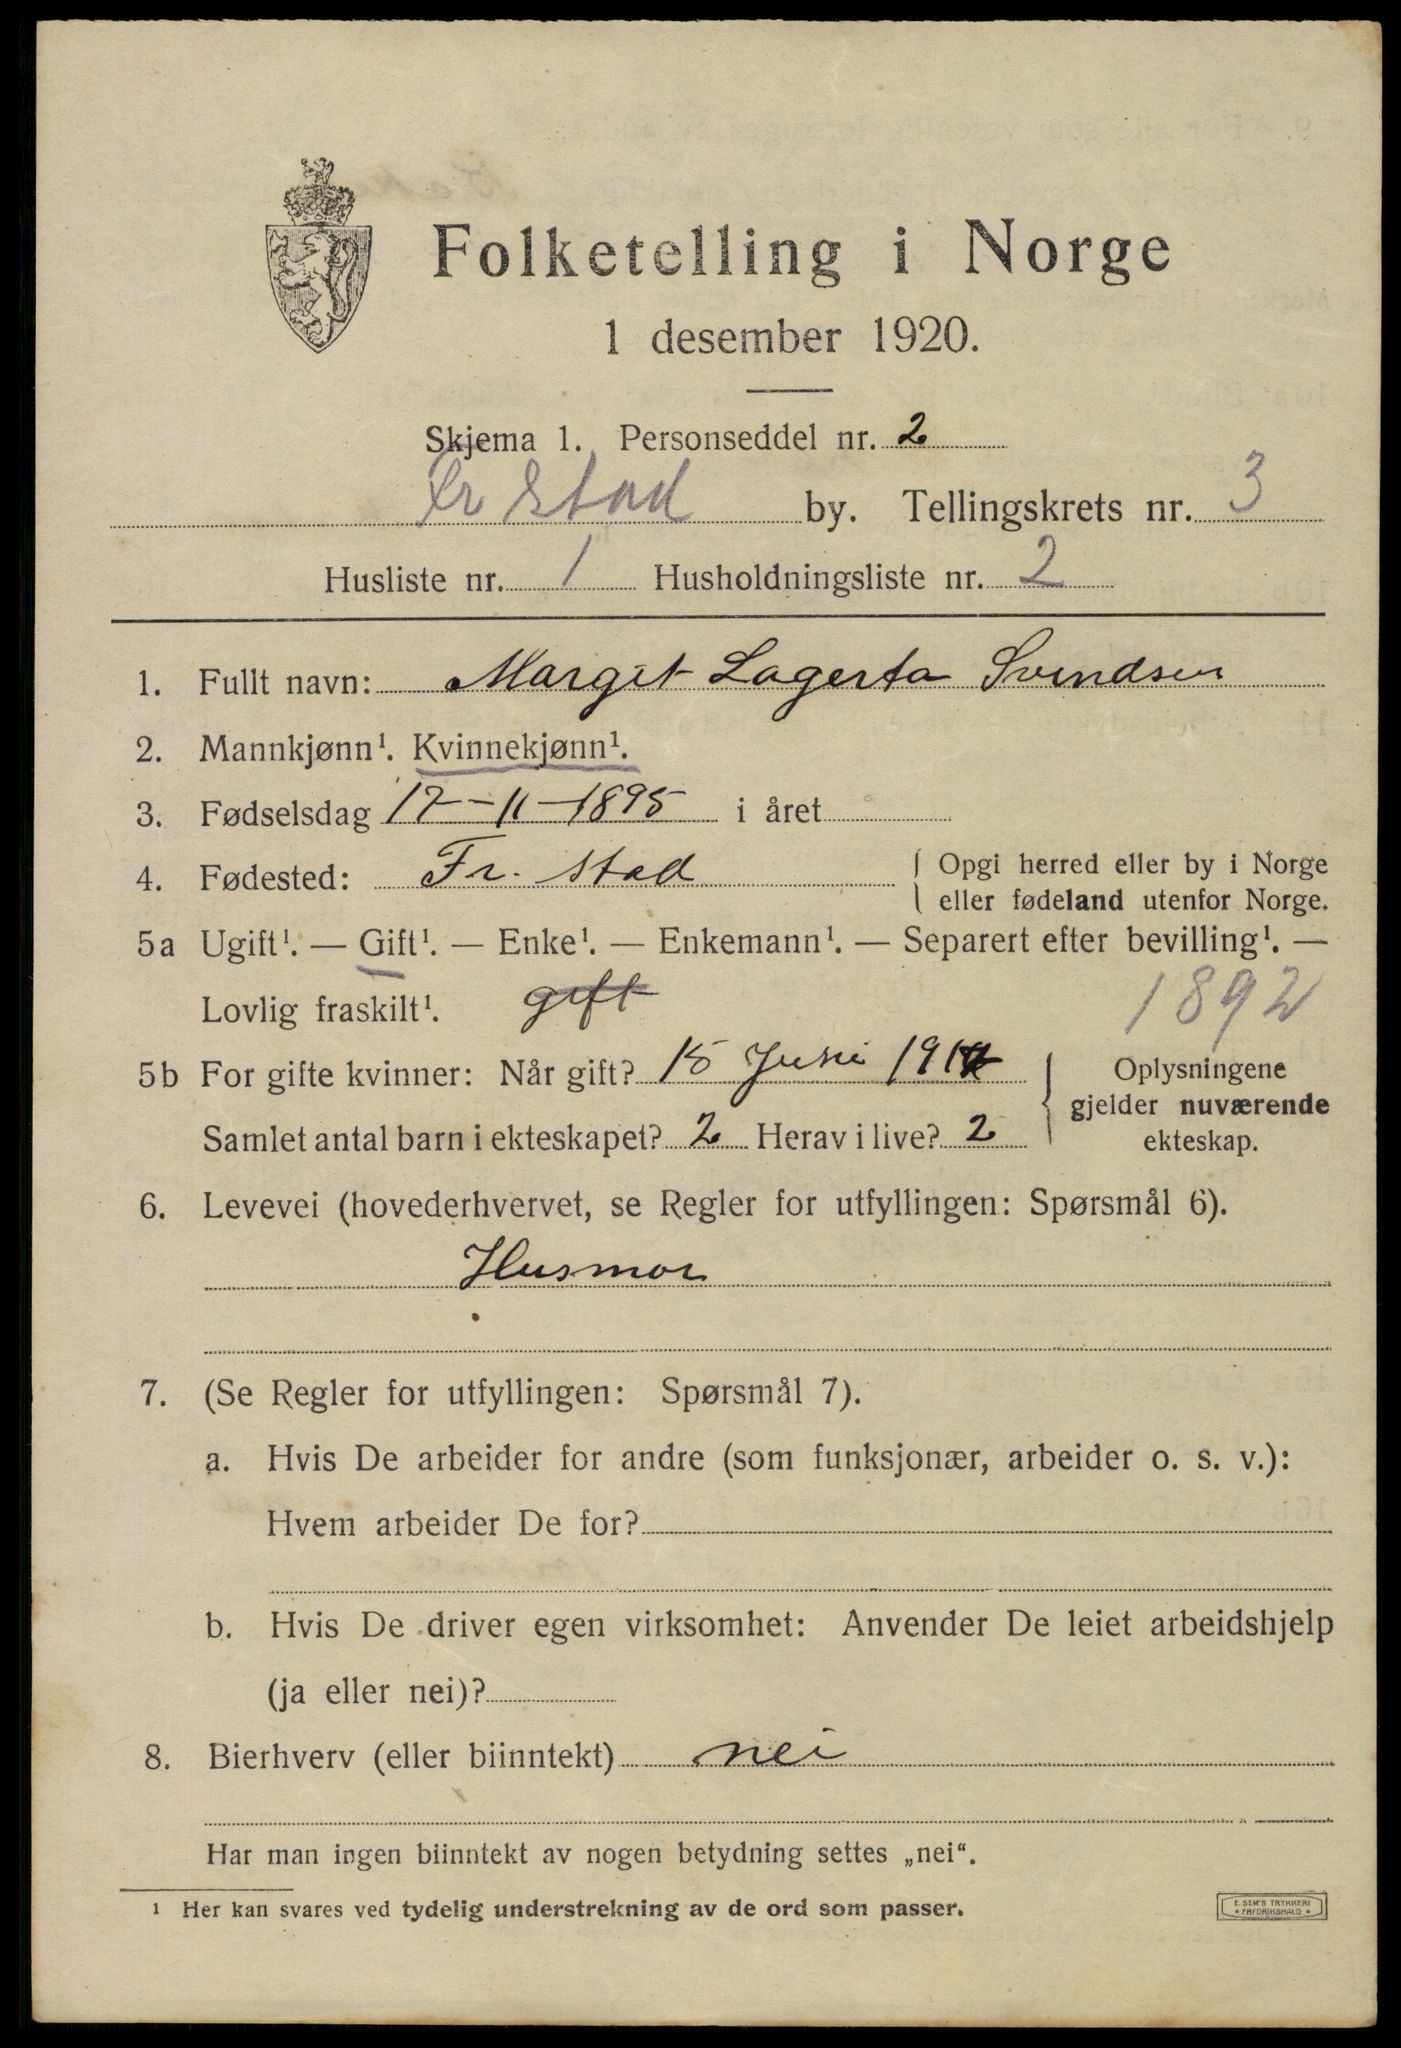 Folketelling i Norge
1 desember 1920.
Skjema 1. Personseddel nr. 2
Fr stad by. Tellingskrets nr. 3
Husliste nr. 1 Husholdningsliste nr. 2
1. Fullt navn: Margit Lagerta Svendsen
2. Mannkjønn¹. Kvinnekjønn¹.
3. Fødselsdag 17-11-1895 i året
4. Fødested: Fr. stad { Opgi herred eller by i Norge
eller fødeland utenfor Norge.
5a Ugift¹. — Gift¹. — Enke¹. — Enkemann¹. — Separert efter bevilling¹. —
Lovlig fraskilt¹. gift 1892
5b For gifte kvinner: Når gift? 15 Juni 191
Samlet antal barn i ekteskapet? 2 Herav i live? 2
{ Oplysningene
gjelder nuværende
ekteskap.
6. Levevei (hovederhvervet, se Regler for utfyllingen: Spørsmål 6).
Husmor
7. (Se Regler for utfyllingen: Spørsmål 7).
a. Hvis De arbeider for andre (som funksjonær, arbeider o. s. v.):
Hvem arbeider De for?
b. Hvis De driver egen virksomhet: Anvender De leiet arbeidshjelp
(ja eller nei)?
8. Bierhverv (eller biinntekt) nei
Har man ingen biinntekt av nogen betydning settes „nei“.
¹ Her kan svares ved tydelig understrekning av de ord som passer.
E. SEM'S TRYKKERI
* FREDRIKSHALD *